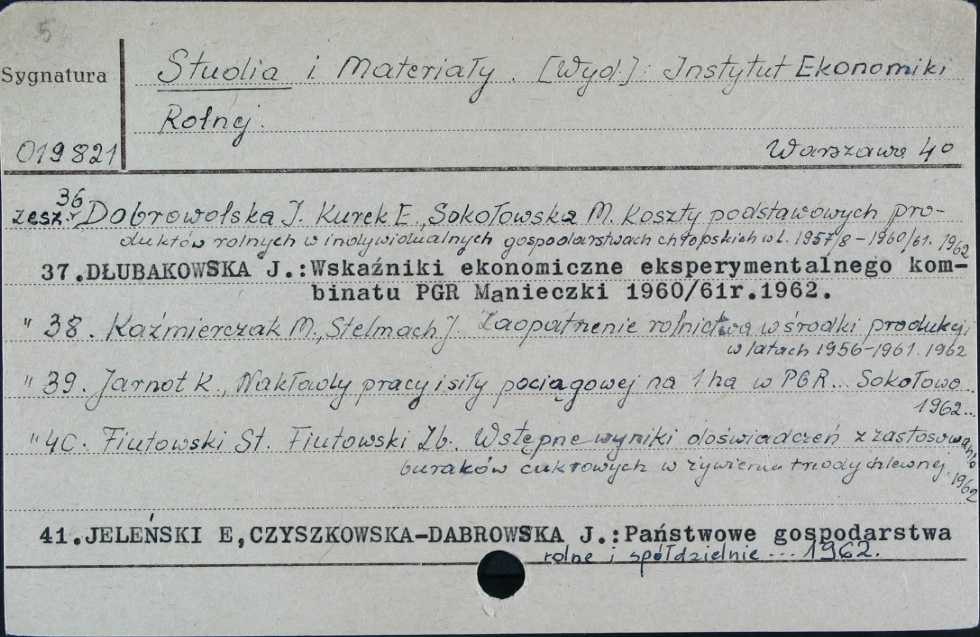 5
Sygnatura
Studia i Materiały. [Wyd]: Instytut Ekonomiki
Rolnej.
019821
Warszawa 4°
zesz. 36 Dobrowolska J. Kurek E., Sokołowska M. Koszty podstawowych pro-
duktów rolnych w indywidualnych gospodarstwach chłopskich w l. 1957/8-1960/61. 1962
37.DŁUBAKOWSKA J.:Wskaźniki ekonomiczne eksperymentalnego kom-
binatu PGR Manieczki 1960/61r.1962.
" 38. Kaźmierczak M., Stelmach J. Zaopatrzenie rolnictwa w środki produkcji
w latach 1956-1961. 1962
" 39. Jarnot K., Nakłady pracy i siły pociągowej na 1 ha w PGR... Sokołowo...
1962..
" 40. Fiutowski St. Fiutowski Zb. Wstępne wyniki doświadczeń z zastosowania
buraków cukrowych w żywieniu trzody chlewnej. 1962
41.JELEŃSKI E,CZYSZKOWSKA-DABROWSKA J.:Państwowe gospodarstwa
rolne i spółdzielnie ... 1962.